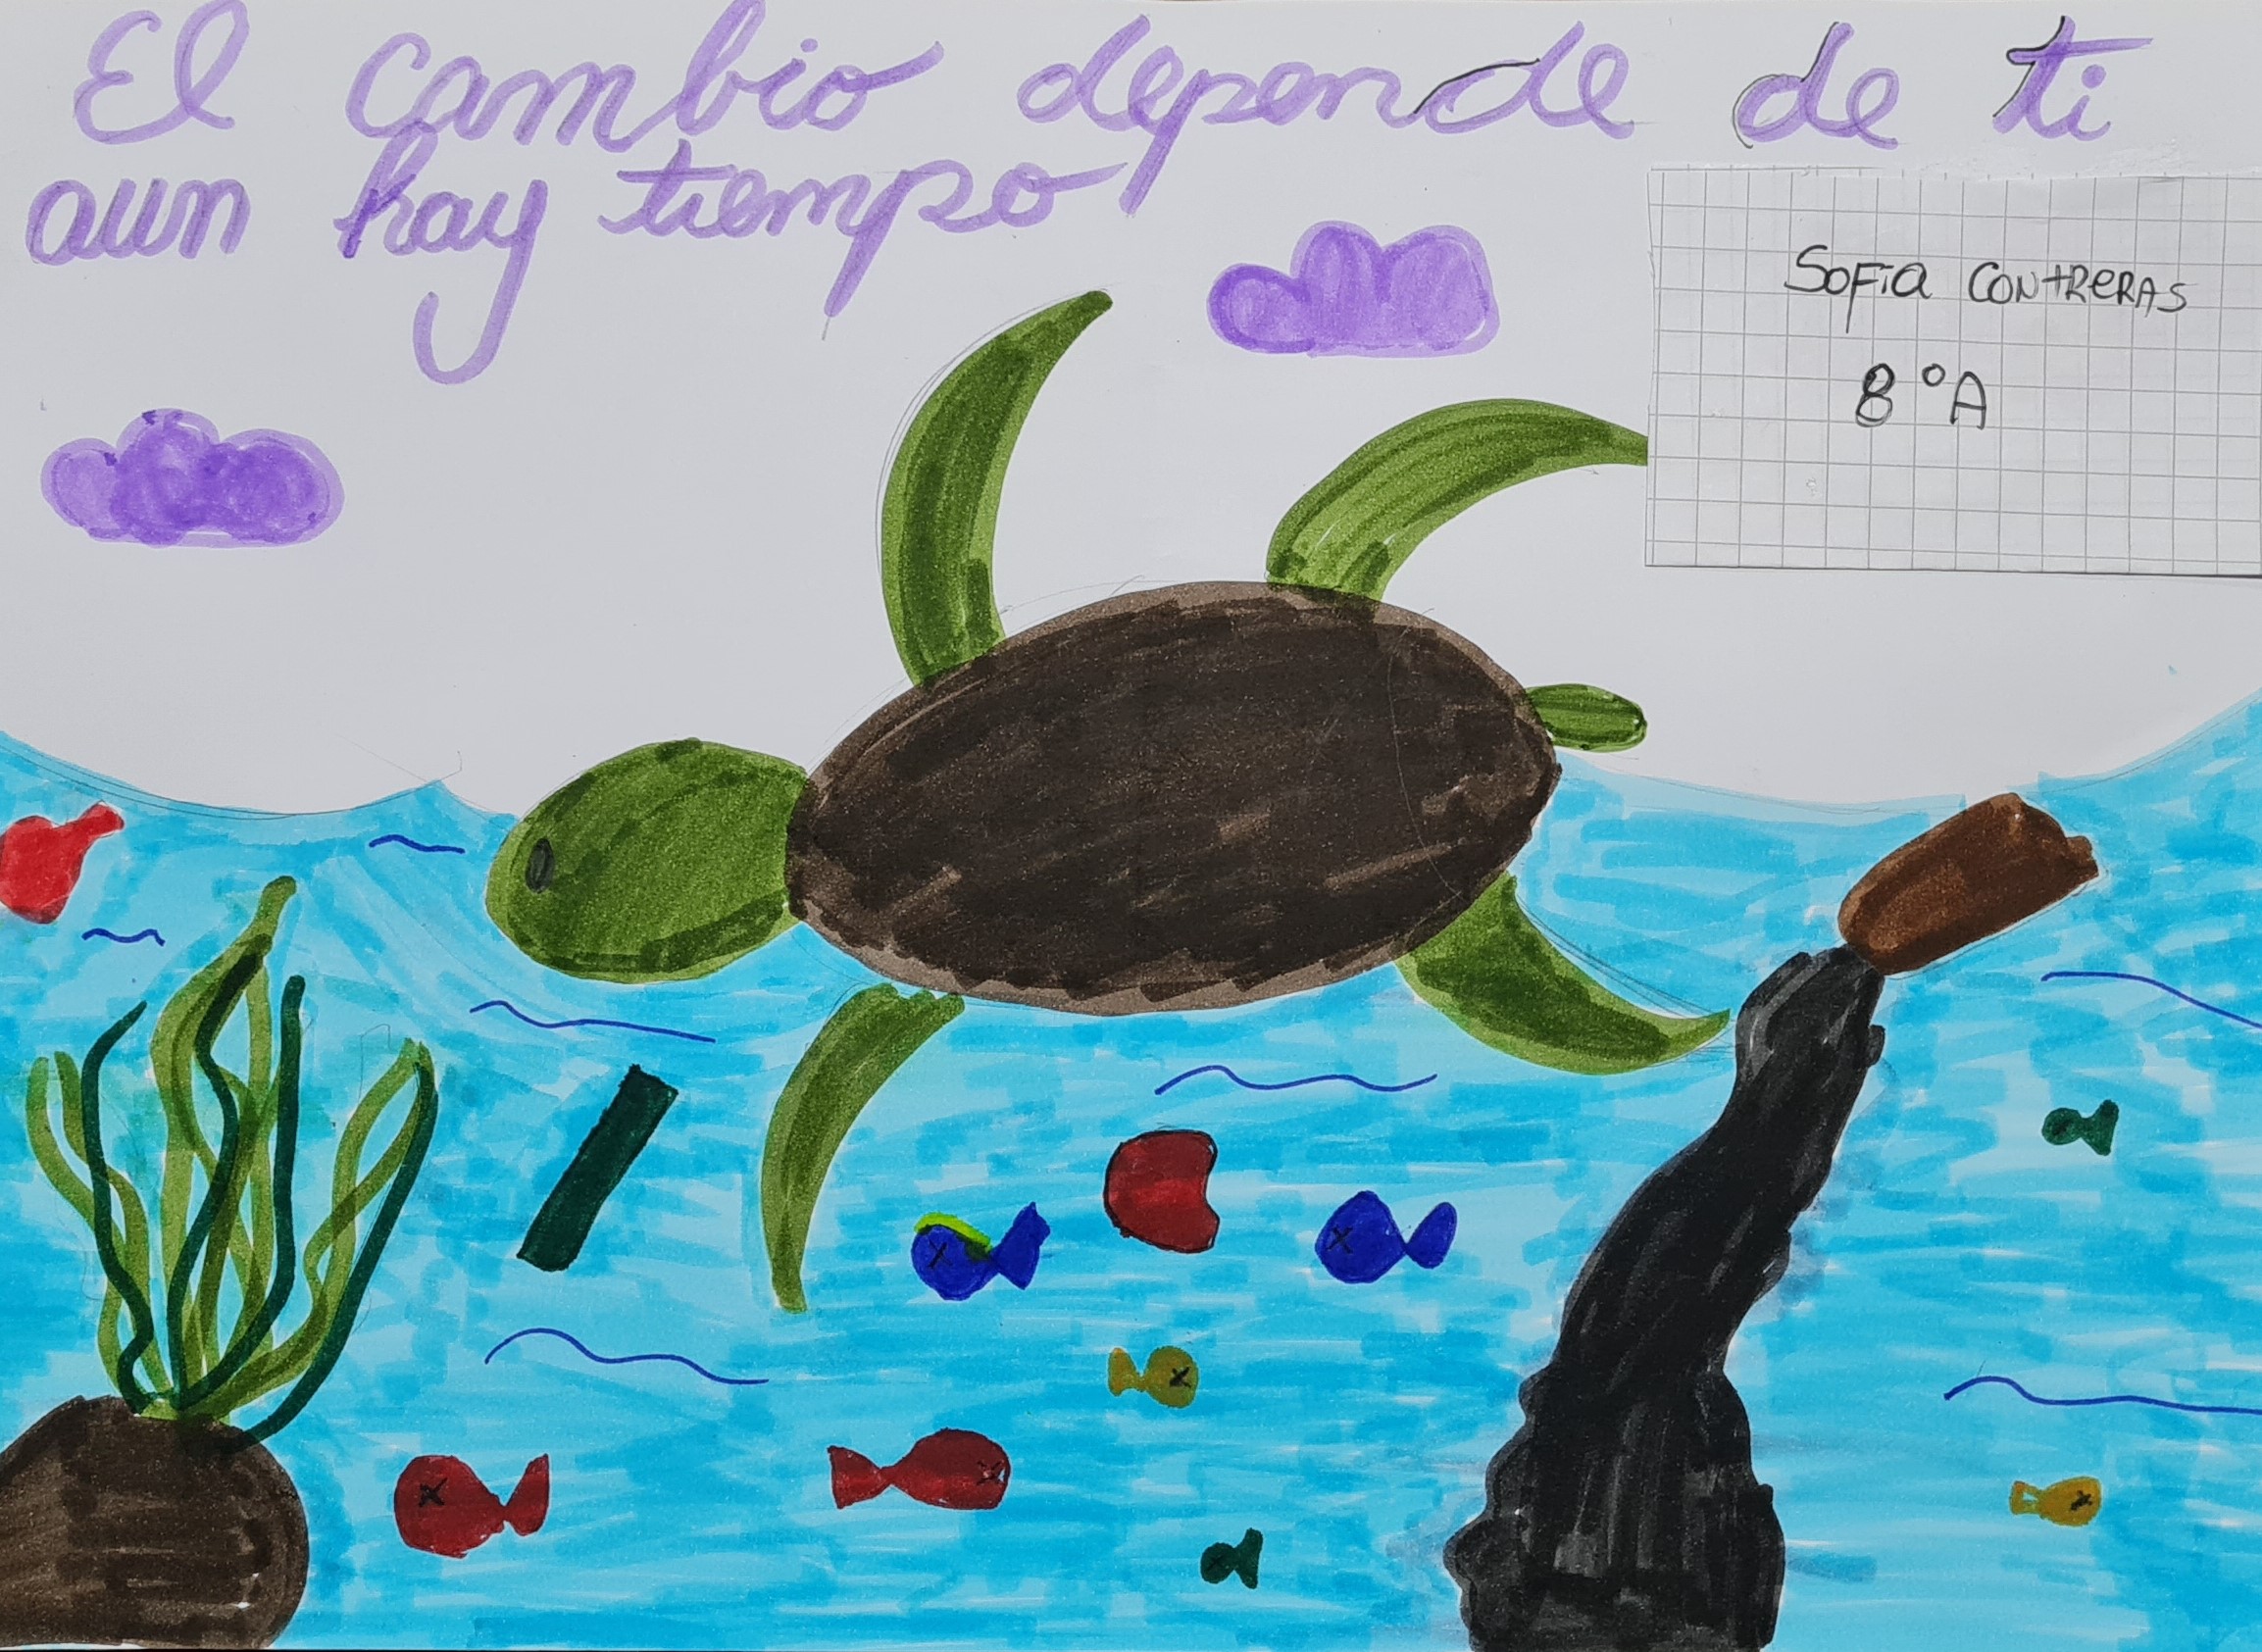 El cambio depende de ti
aun hay tiempo
Sofia Contreras
8°A